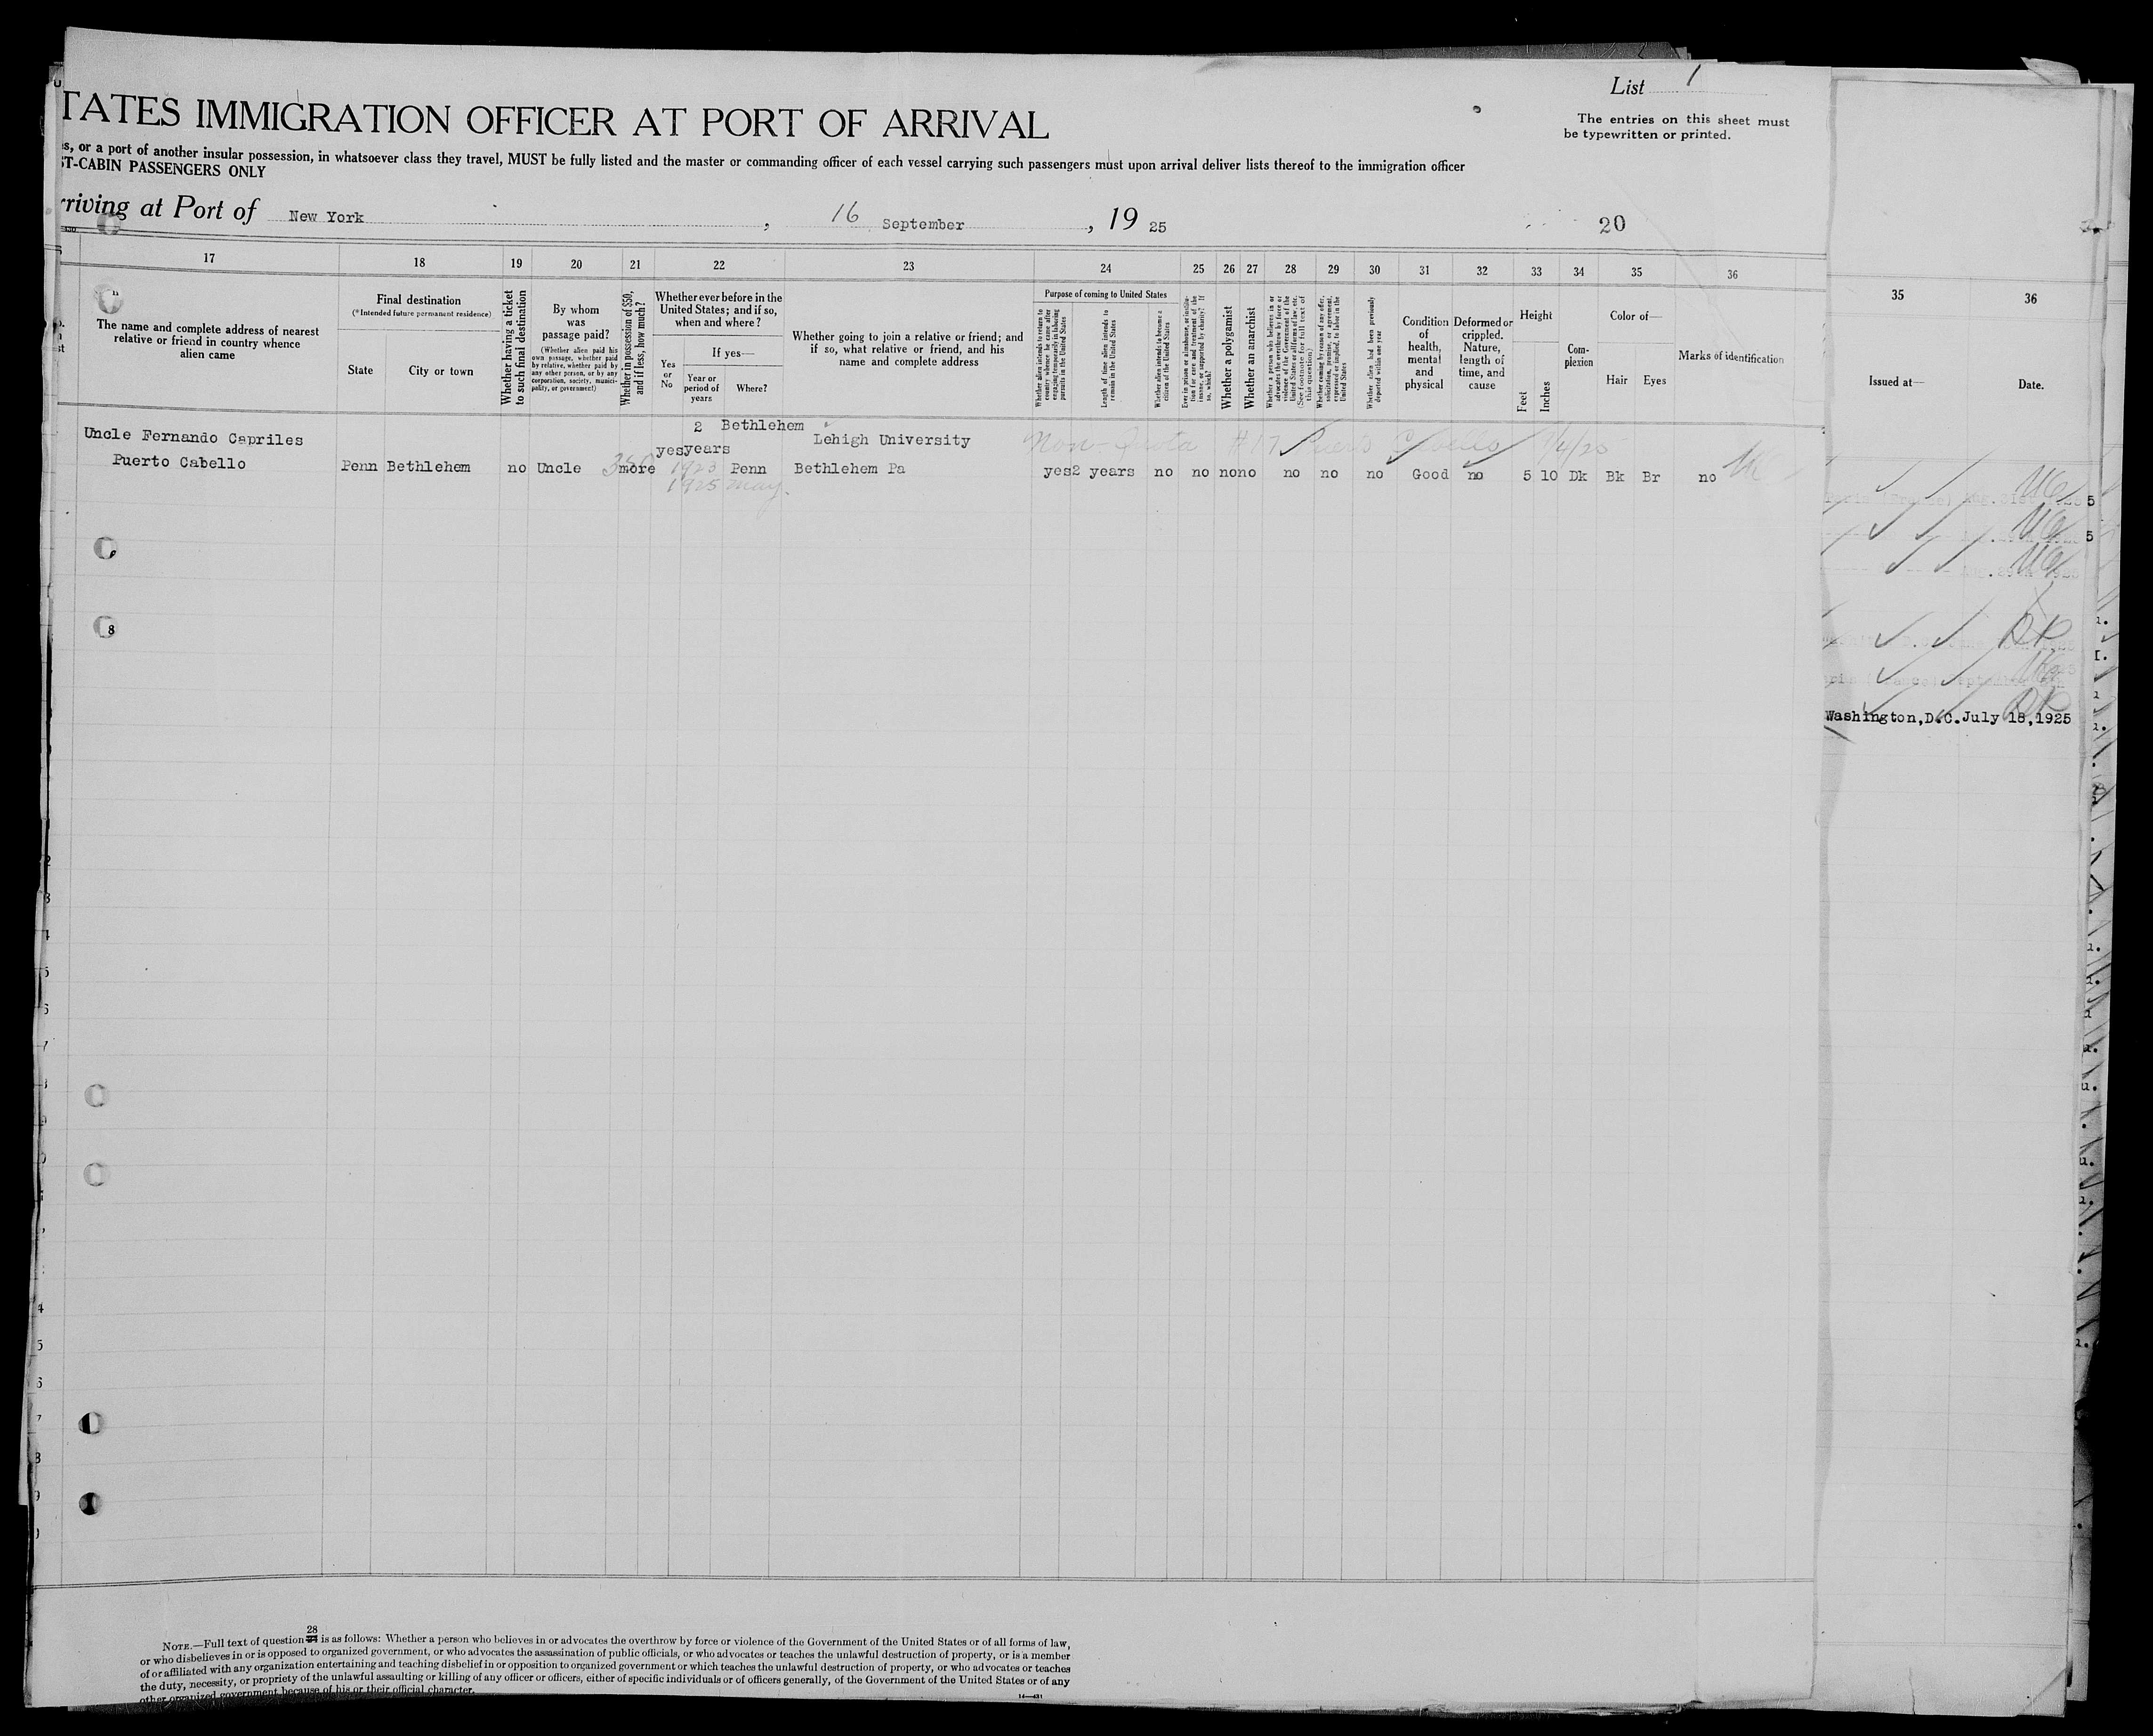 List 1
TATES IMMIGRATION OFFICER AT PORT OF ARRIVAL
The entries on this sheet must
be typewritten or printed.
s, or a port of another insular possession, in whatsoever class they travel, MUST be fully listed and the master or commanding officer of each vessel carrying such passengers must upon arrival deliver lists thereof to the immigration officer
ST-CABIN PASSENGERS ONLY
rriving at Port of New York , 16 September , 19 25
20
17 18 19 20 21 22 23 24 25 26 27 28 29 30 31 32 33 34 35 36
The name and complete address of nearest
relative or friend in country whence
alien came
Final destination
(*Intended future permanent residence)
State
City or town
Whether having a ticket
to such final destination
By whom
was
passage paid?
(Whether alien paid his
own passage, whether paid
by relative, whether paid by
any other person, or by any
corporation, society, munici-
pality, or government)
Whether in possession of $50,
and if less, how much?
Whether ever before in the
United States; and if so,
when and where?
Yes
or
No
If yes—
Year or
period of
years
Where?
Whether going to join a relative or friend; and
if so, what relative or friend, and his
name and complete address
Purpose of coming to United States
Whether alien intends to return to
country whence he came after
engaging temporarily in laboring
pursuits in the United States
Length of time alien intends to
remain in the United States
Whether alien intends to become a
citizen of the United States
Ever in prison or almshouse, or institu-
tion for care and treatment of the
insane, or supported by charity? If
so, which?
Whether a polygamist
Whether an anarchist
Whether a person who believes in or
advocates the overthrow by force or
violence of the Government of the
United States or all forms of law, etc.
(See footnote for full text of
this question)
Whether coming by reason of any offer,
solicitation, promise, or agreement,
expressed or implied, to labor in the
United States
Whether alien had been previously
deported within one year
Condition
of
health,
mental
and
physical
Deformed or
crippled.
Nature,
length of
time, and
cause
Height
Feet
Inches
Com-
plexion
Color of—
Hair
Eyes
Marks of identification
35 36
Issued at—
Date.
2 Bethlehem
Uncle Fernando Capriles yes years Lehigh University Non-Quota #17 Puerto Cabello 9/4/25
Puerto Cabello Penn Bethlehem no Uncle 350 more 1923 Penn Bethlehem Pa yes 2 years no no no no no no no Good no 5 10 Dk Bk Br no
1925 may.
5
5
8
Washington,D.C.July 18,1925
28
NOTE.—Full text of question is as follows: Whether a person who believes in or advocates the overthrow by force or violence of the Government of the United States or of all forms of law,
or who disbelieves in or is opposed to organized government, or who advocates the assassination of public officials, or who advocates or teaches the unlawful destruction of property, or is a member
of or affiliated with any organization entertaining and teaching disbelief in or opposition to organized government or which teaches the unlawful destruction of property, or who advocates or teaches
the duty, necessity, or propriety of the unlawful assaulting or killing of any officer or officers, either of specific individuals or of officers generally, of the Government of the United States or of any
other organized government because of his or their official character.
14—431